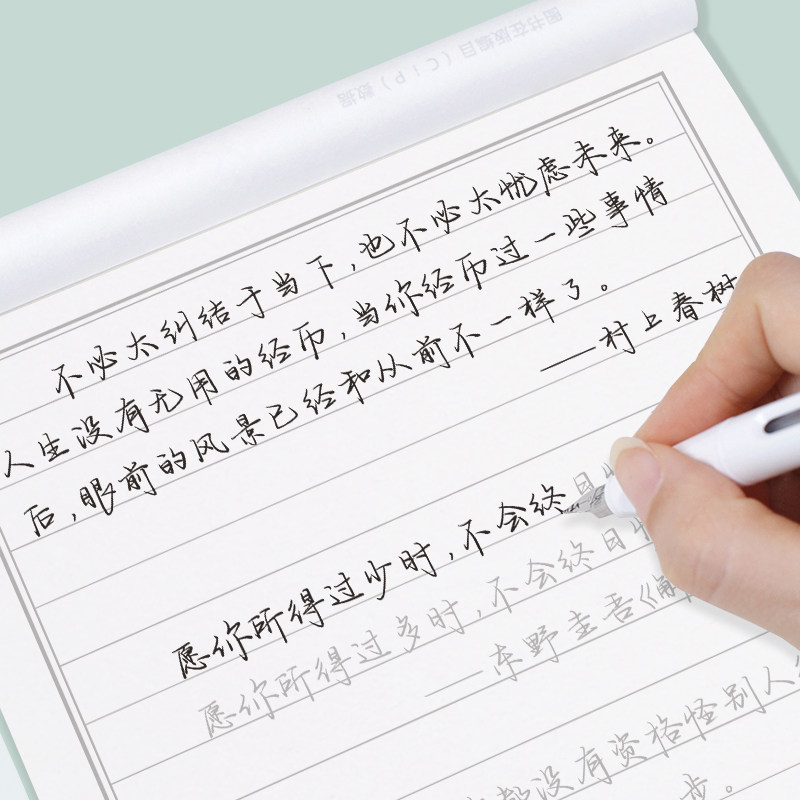 图书在版编目（CIP）数据
不必太纠结于当下，也不必太忧虑未来。
人生没有无用的经历，当你经历过一些事情
后，眼前的风景已经和从前不一样了。
——村上春树
愿你所得过少时，不会终日
愿你所得过多时，不会终日
——东野圭吾《解
都没有资格怪别人
步。